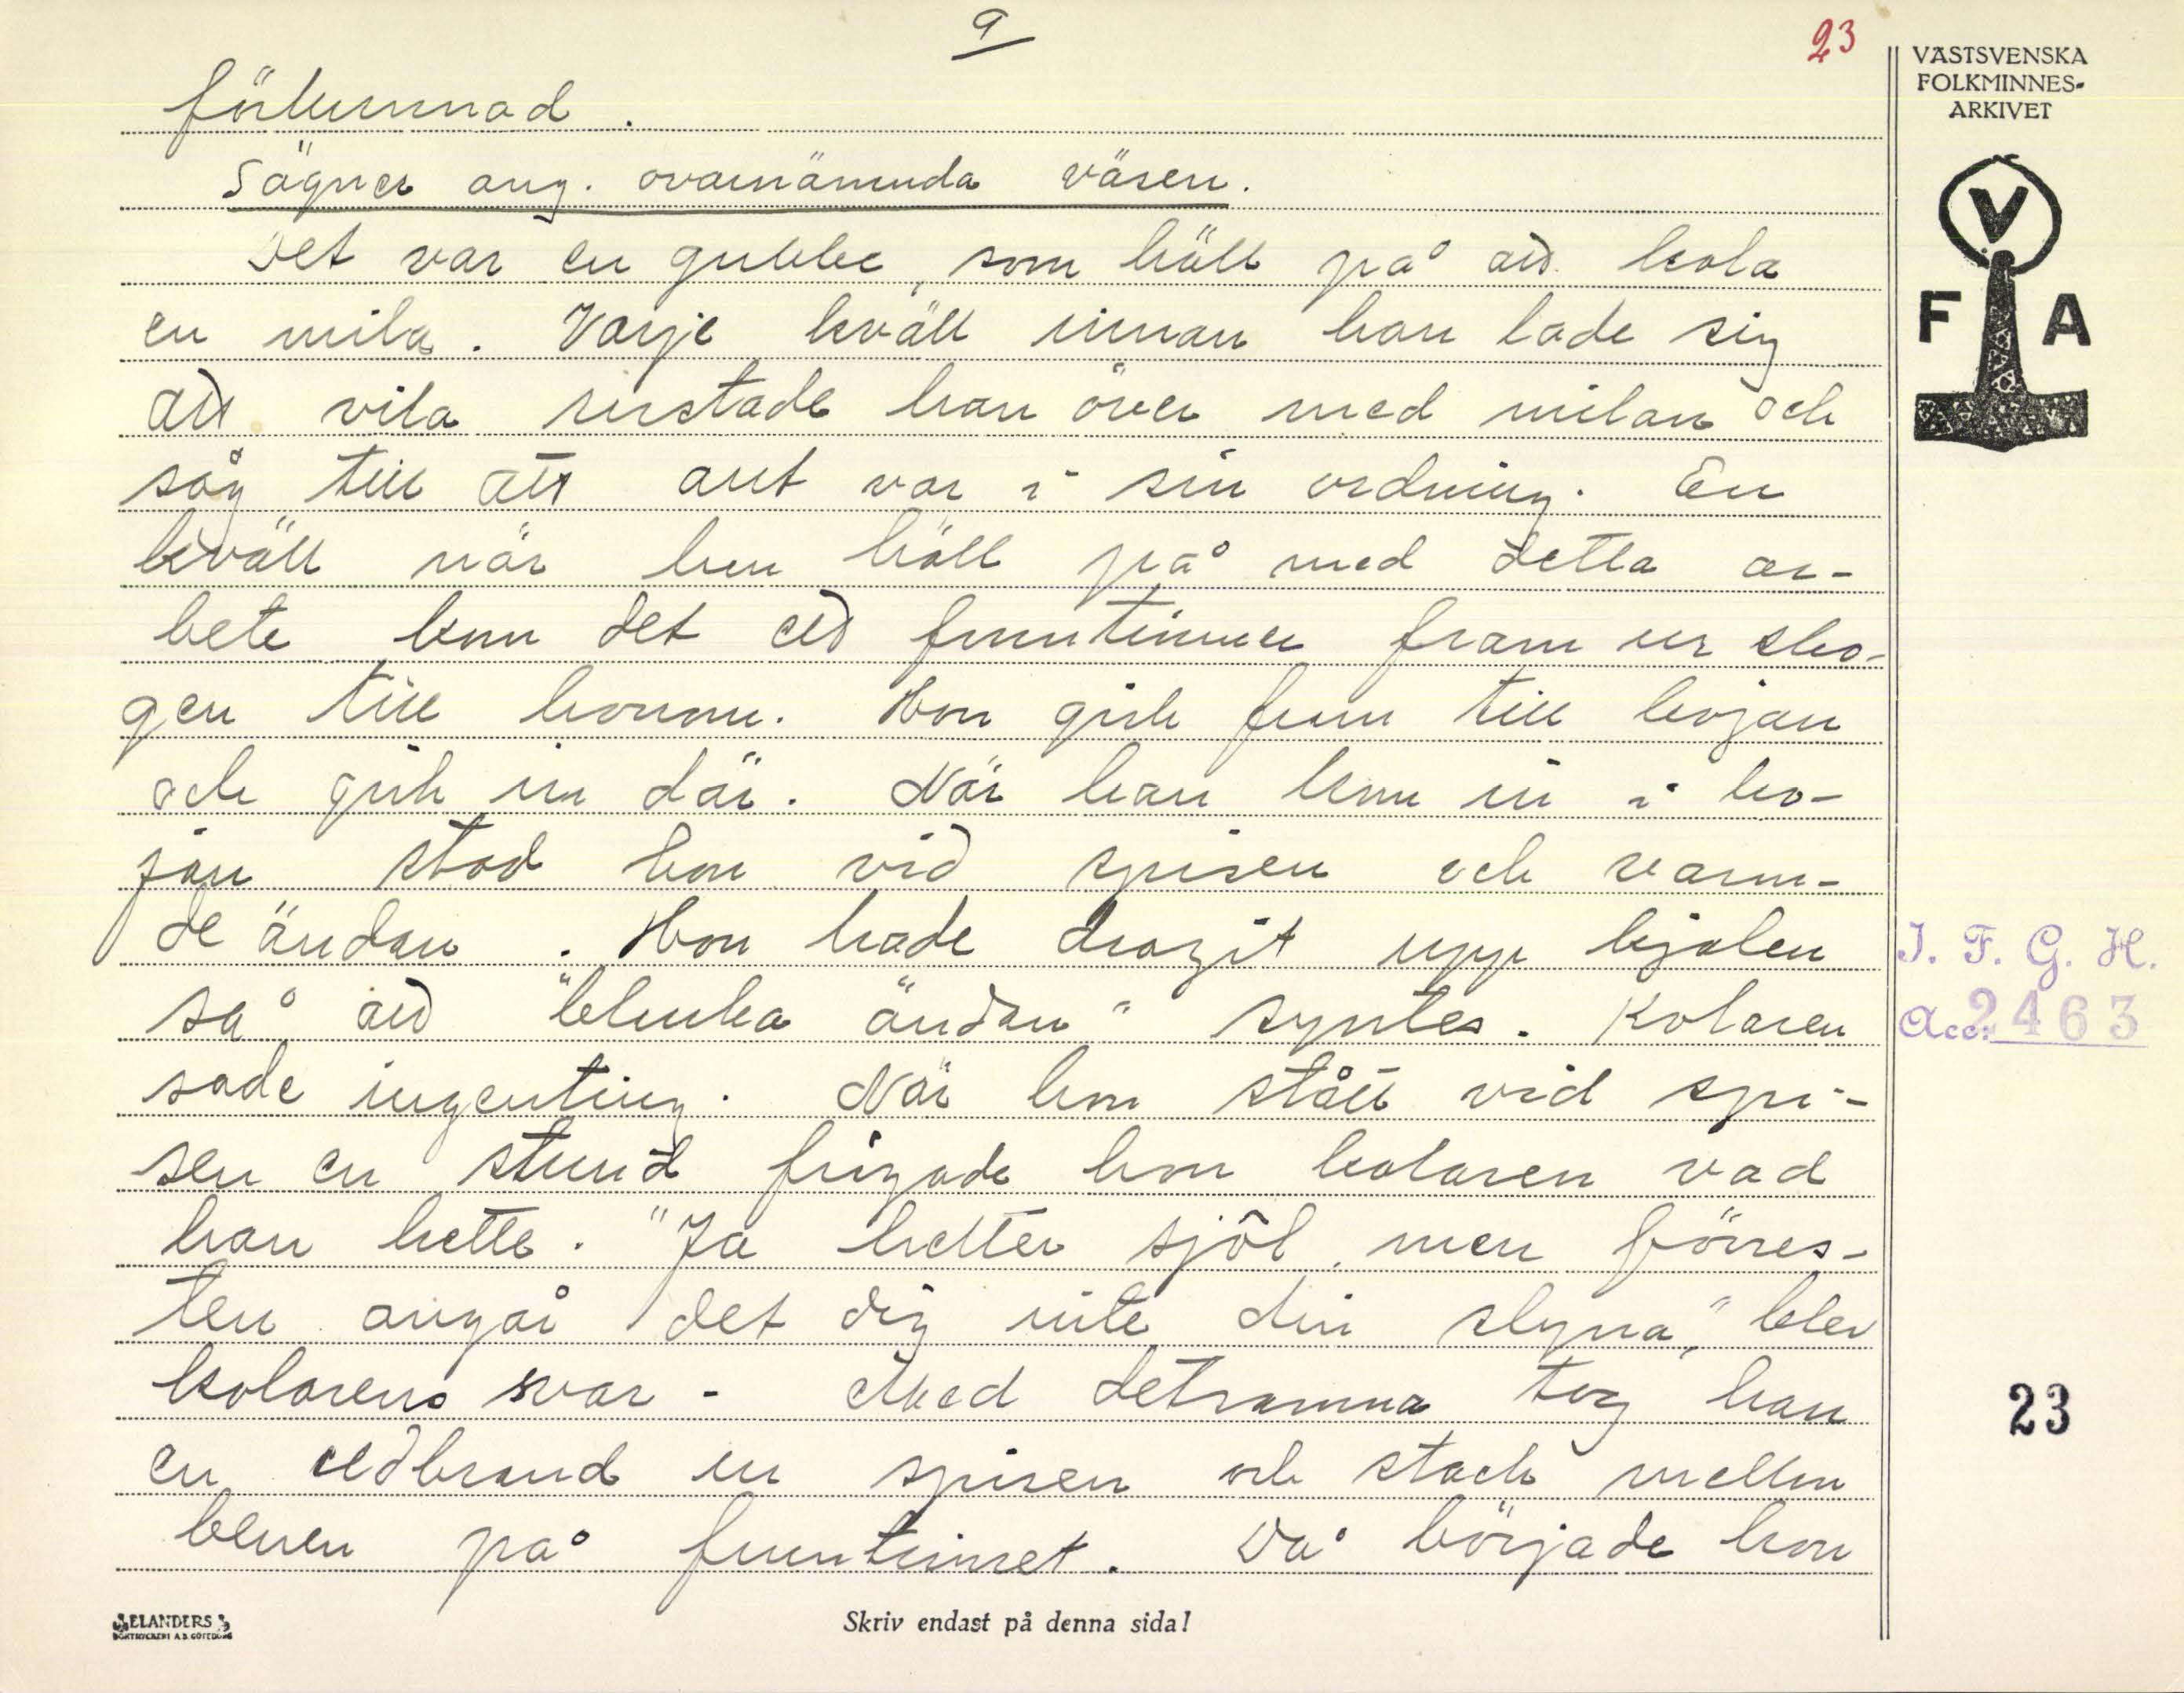 9
23
VÄSTSVENSKA
FOLKMINNES-
ARKIVET
förkunnad.
Sägner ang. ovannämnda väsen.
Det var en gubbe, som höll på att kola
en mila. Varje kväll innan han lade sig
att vila rustade han över med milan och
såg till att allt var i sin ordning. En
kväll när han höll på med detta ar-
bete kom det ett fruntimmer fram ur sko-
gen till honom. Hon gick fram till kojan
och gick in där. När han kom in i ko-
jan stod hon vid spisen och värm-
de ändan. Hon hade dragit upp kjolen
så att "blanka ändan" syntes. Kolaren
sade ingenting. När hon stått vid spi-
sen en stund frågade hon kolaren vad
han hette. "Ja hetter sjôl, men förres-
ten angår det dig inte din slyna," blev
kolarens svar. Med detsamma tog han
en eldbrand ur spisen och stack mellan
benen på fruntimret. Då började hon
V
F A
I. F. G. H.
Acc. 2463
23
ELANDERS
BOKTRYCKERI A.B. GÖTEBORG
Skriv endast på denna sida!